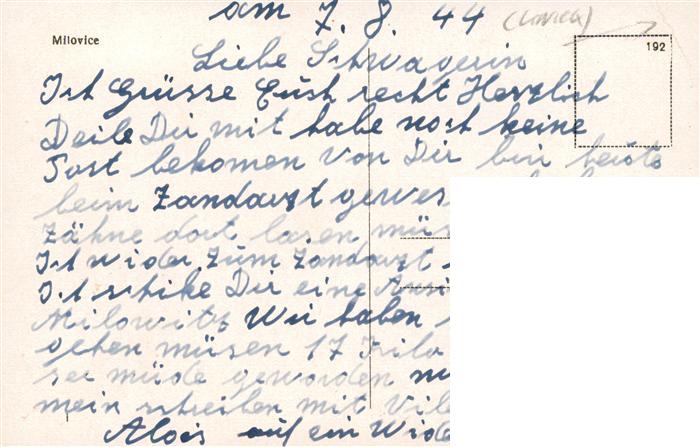 am 7. 8. 44
Milovice
192
Liebe Schwagerin
Ich Grüsse Euch recht Herzlich
Deile Dir mit habe noch keine
Post bekomen von Dir bin heute
beim Zandarzt gewes
Zähne dort lasen müs
Ich wider zum Zandarzt
Ich schike Dir eine Ansi
Milowitz Wir haben
gehen müsen 17 Kilo
ser müde geworden
mein schreiben mit Vile
Alois auf ein Wide